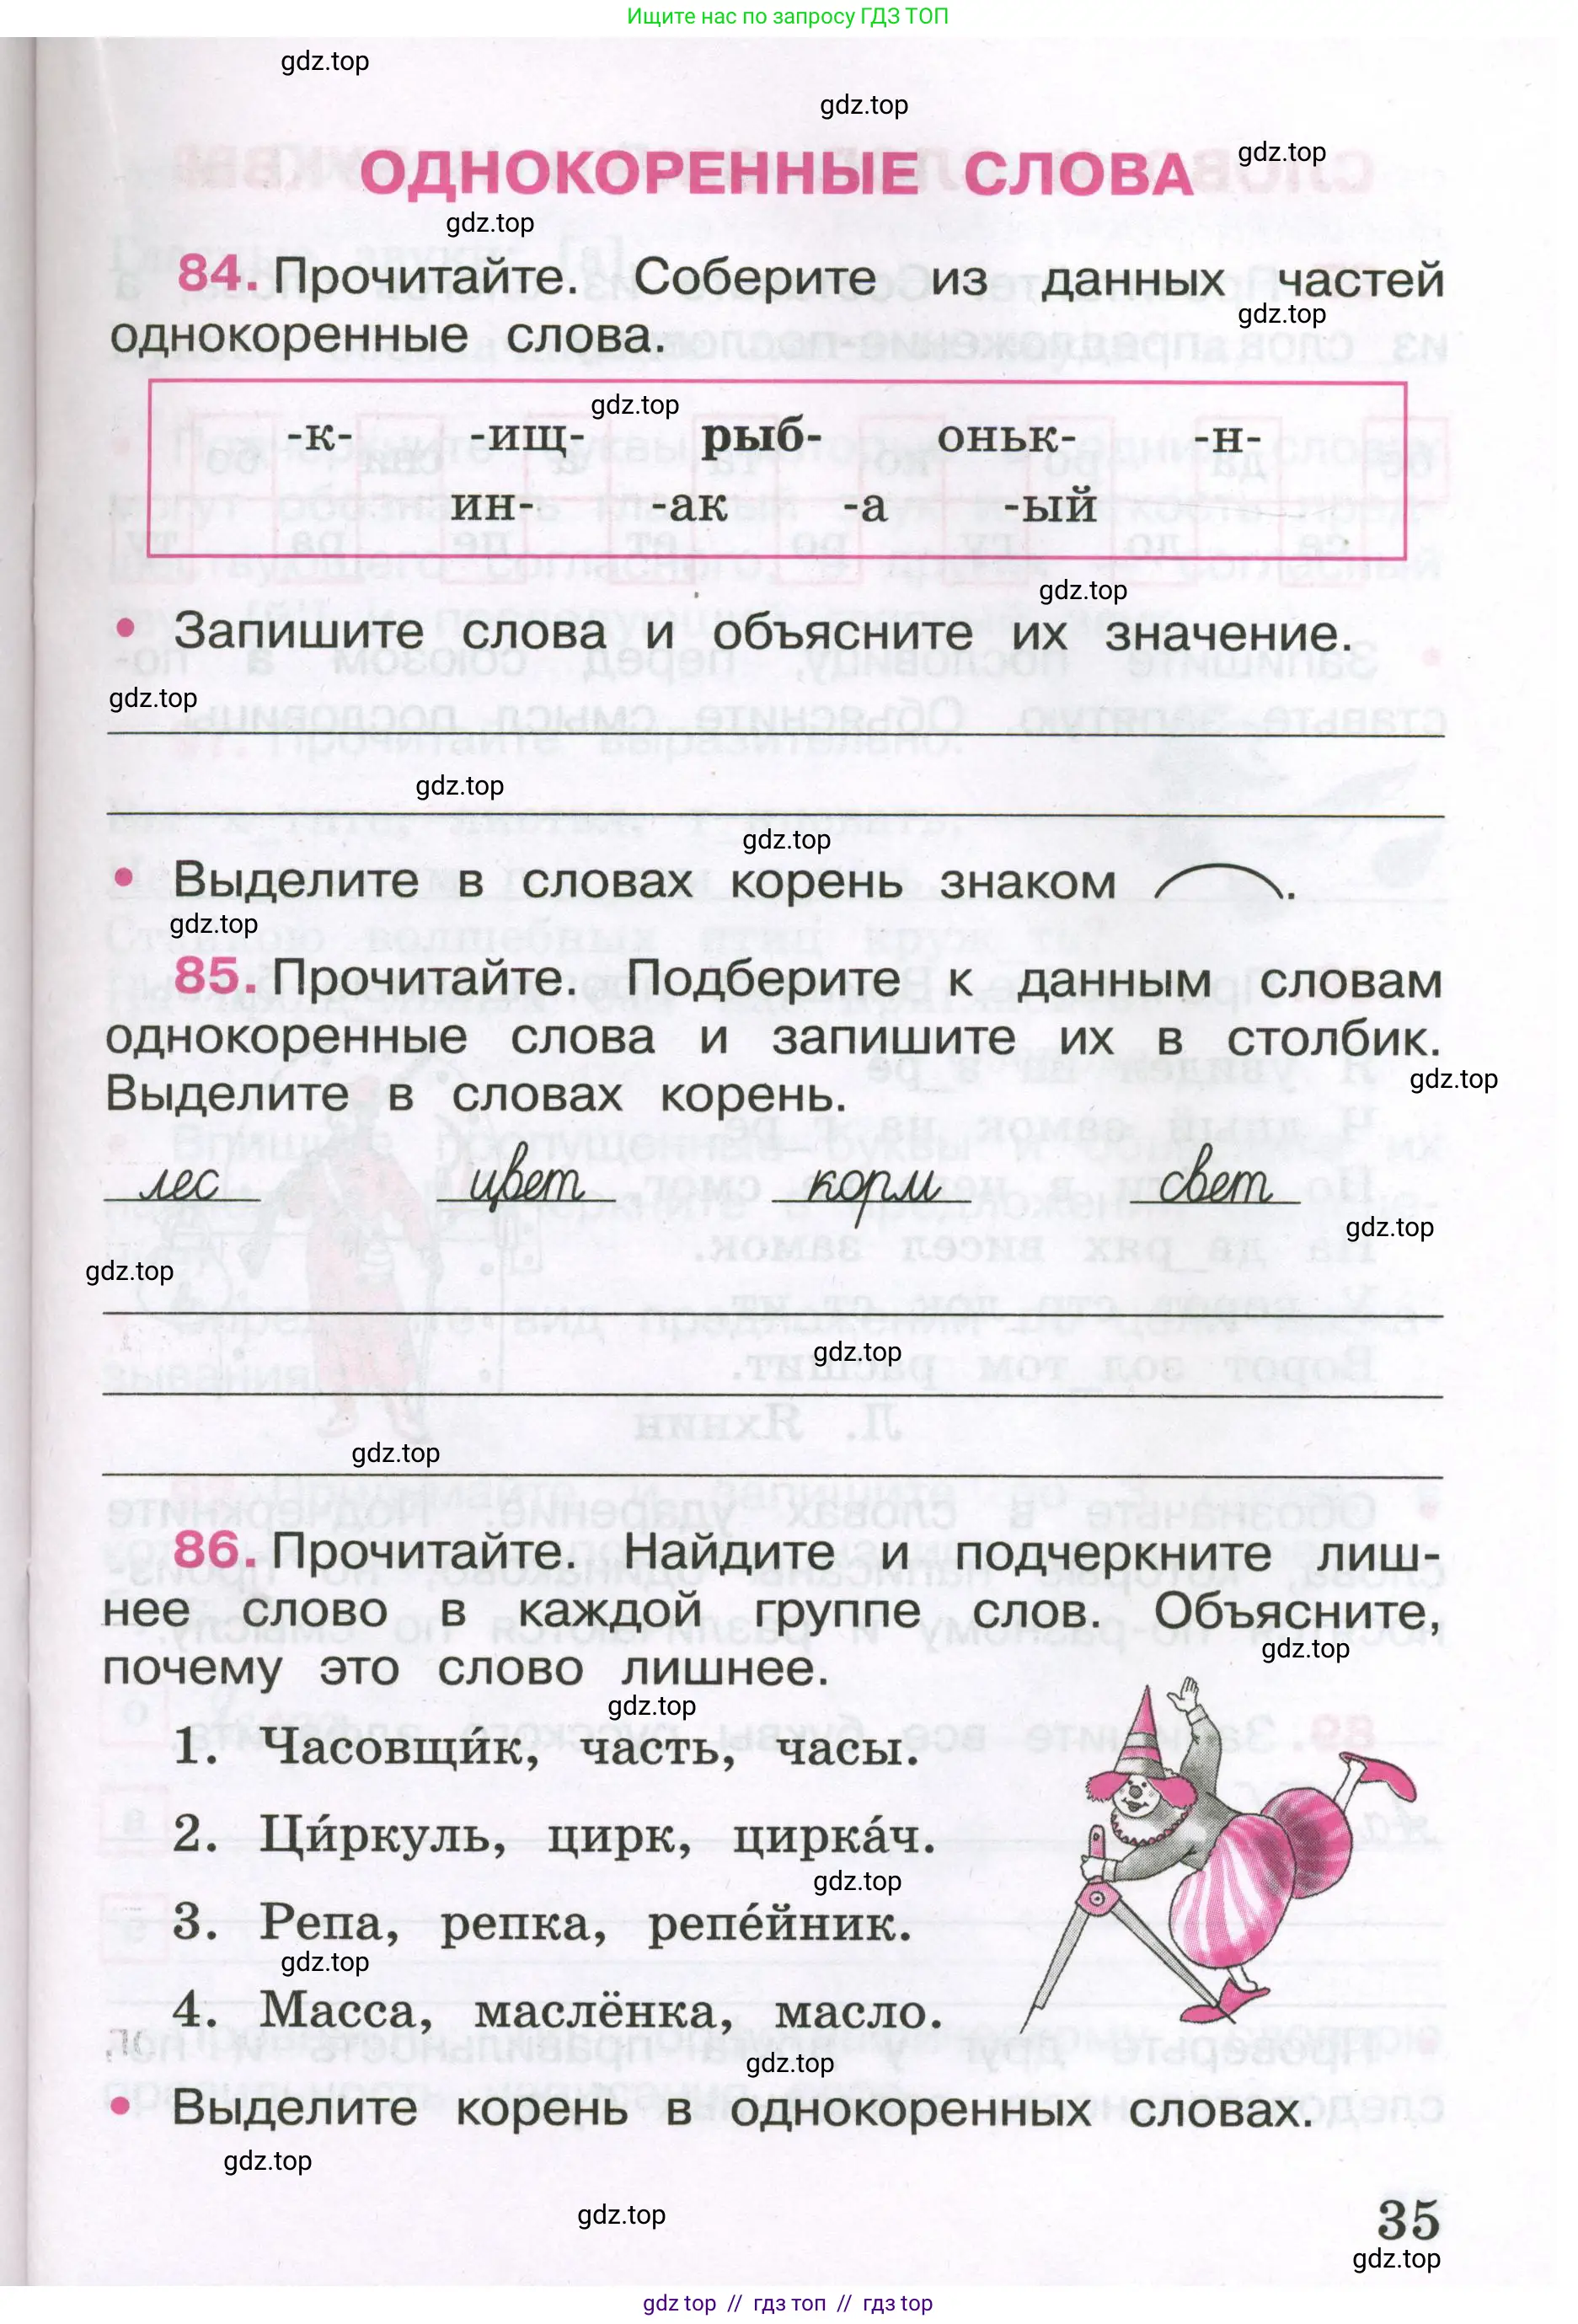 Ищите нас по запросу ГДЗ ТОП
gdz.top
gdz.top
gdz.top
ОДНОКОРЕННЫЕ СЛОВА
gdz.top
84. Прочитайте. Соберите из данных частей
gdz.top
однокоренные слова.
gdz.top
-к- -ищ- рыб- оньк- -н-
ин- -ак -а -ый
gdz.top
• Запишите слова и объясните их значение.
gdz.top
gdz.top
gdz.top
• Выделите в словах корень знаком ⌒.
gdz.top
85. Прочитайте. Подберите к данным словам
однокоренные слова и запишите их в столбик.
gdz.top
Выделите в словах корень.
лес цвет корм свет
gdz.top
gdz.top
gdz.top
gdz.top
86. Прочитайте. Найдите и подчеркните лиш-
нее слово в каждой группе слов. Объясните,
gdz.top
почему это слово лишнее.
gdz.top
1. Часовщи́к, часть, часы.
2. Ци́ркуль, цирк, цирка́ч.
gdz.top
3. Репа, репка, репе́йник.
gdz.top
4. Масса, маслёнка, масло.
gdz.top
• Выделите корень в однокоренных словах.
gdz.top
gdz.top
35
gdz.top
gdz top // гдз топ // гдз top